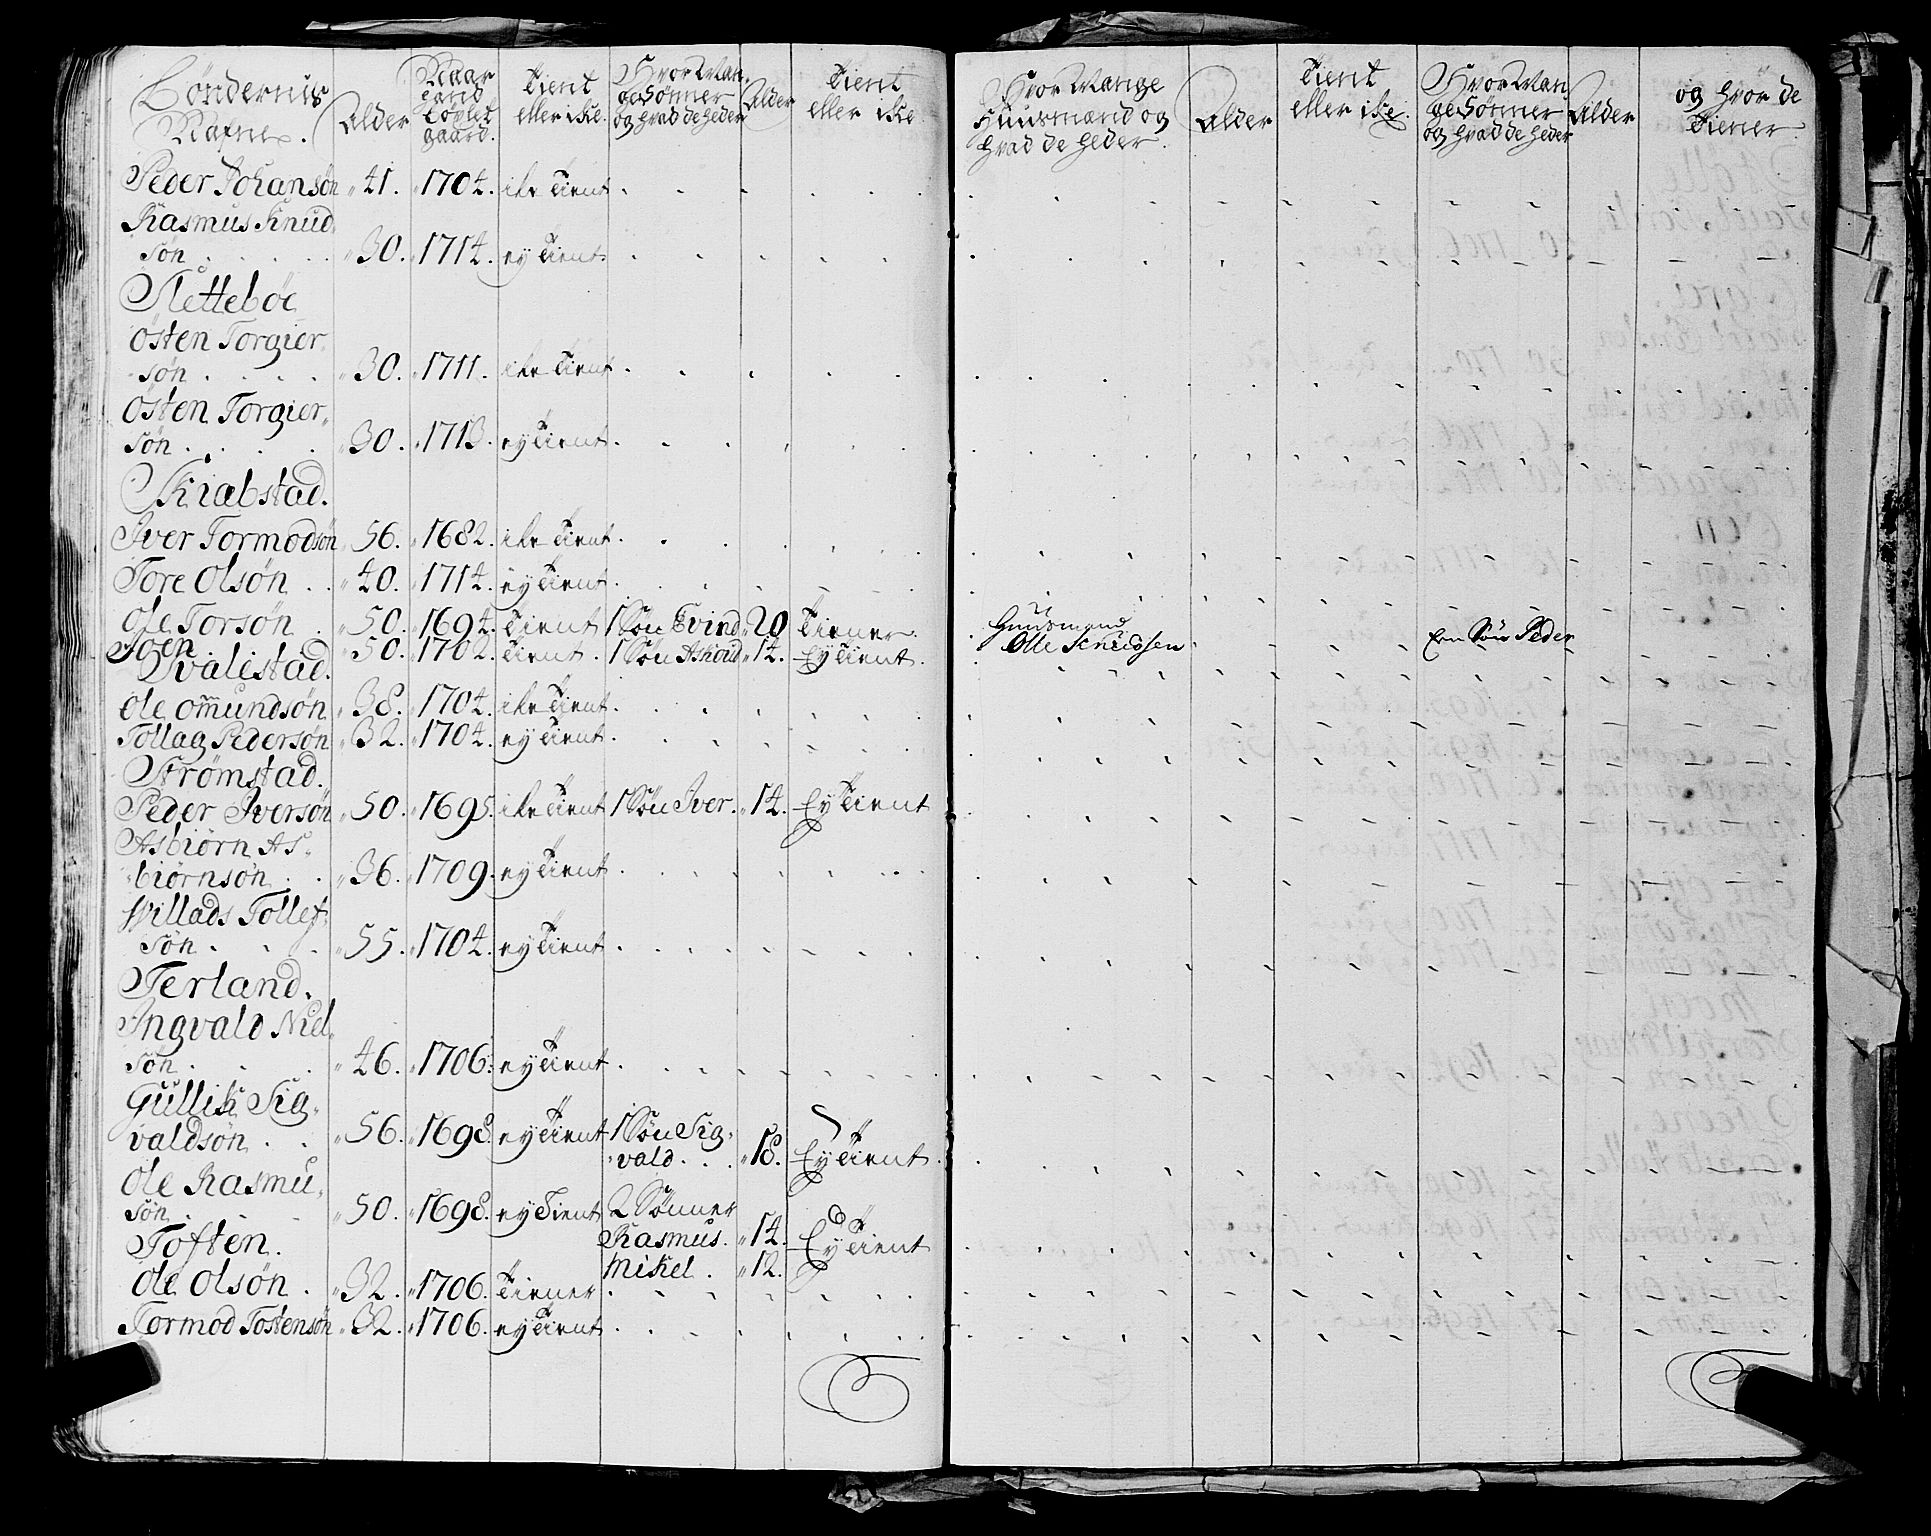 Bøndernis Nafne. Alder Naar hand bøxlet gaard. Tient eller icke. Hvor Man, ge Sønner og hvad de heder Alder Tient eller icke Hvor Mange Huusmænd og hvad de heder. Alder Tient eller icke. Hvor Man, ge Sønner og hvad de heder Alder og hvor de Tiener
Peder Johansøn 41. 1704. icke Tient
Rasmus Knud,
søn 30. 1714. ey Tient
Slettebøe
Østen Torgier,
søn 30. 1711. icke Tient
Østen Torgier,
søn 30. 1713. ey Tient
Skiæbstad.
Iver Tormodsøn 56. 1682. icke Tient
Tore Olsøn 40. 1714. ey Tient
Ole Torsøn 50. 1694. Tient 1 Søn Evind 20 Tiener. Huusmand
Joen 50. 1702. Tient. 1 Søn 14. Ey Tient Olle Knudssen Een Søn Peder
Svalestad.
Ole Omundsøn 38. 1704. icke Tient
Tollag Pedersøn 32. 1704. ey Tient
Strømstad.
Peder Iversøn 50. 1695. icke Tient 1 Søn Iver. 14. Ey Tient
Asbiørn As,
biørnsøn 36. 1709. ey Tient
Willads Tollef,
søn 55. 1704. ey Tient
Terland.
Ingvald Niel,
søn 46. 1706. ey Tient
Gullik Sig,
valdsøn 56. 1698. ey Tient 1 Søn Sig,
vald 18. Ey Tient
Ole Rasmu,
søn 50. 1698. ey Tient 2 Sønner
Toften. Rasmus. 14. Ey Tient
Mikel. 12.
Ole Olsøn 32. 1706. Tiener
Tormod Tostensøn 32. 1706. ey Tient